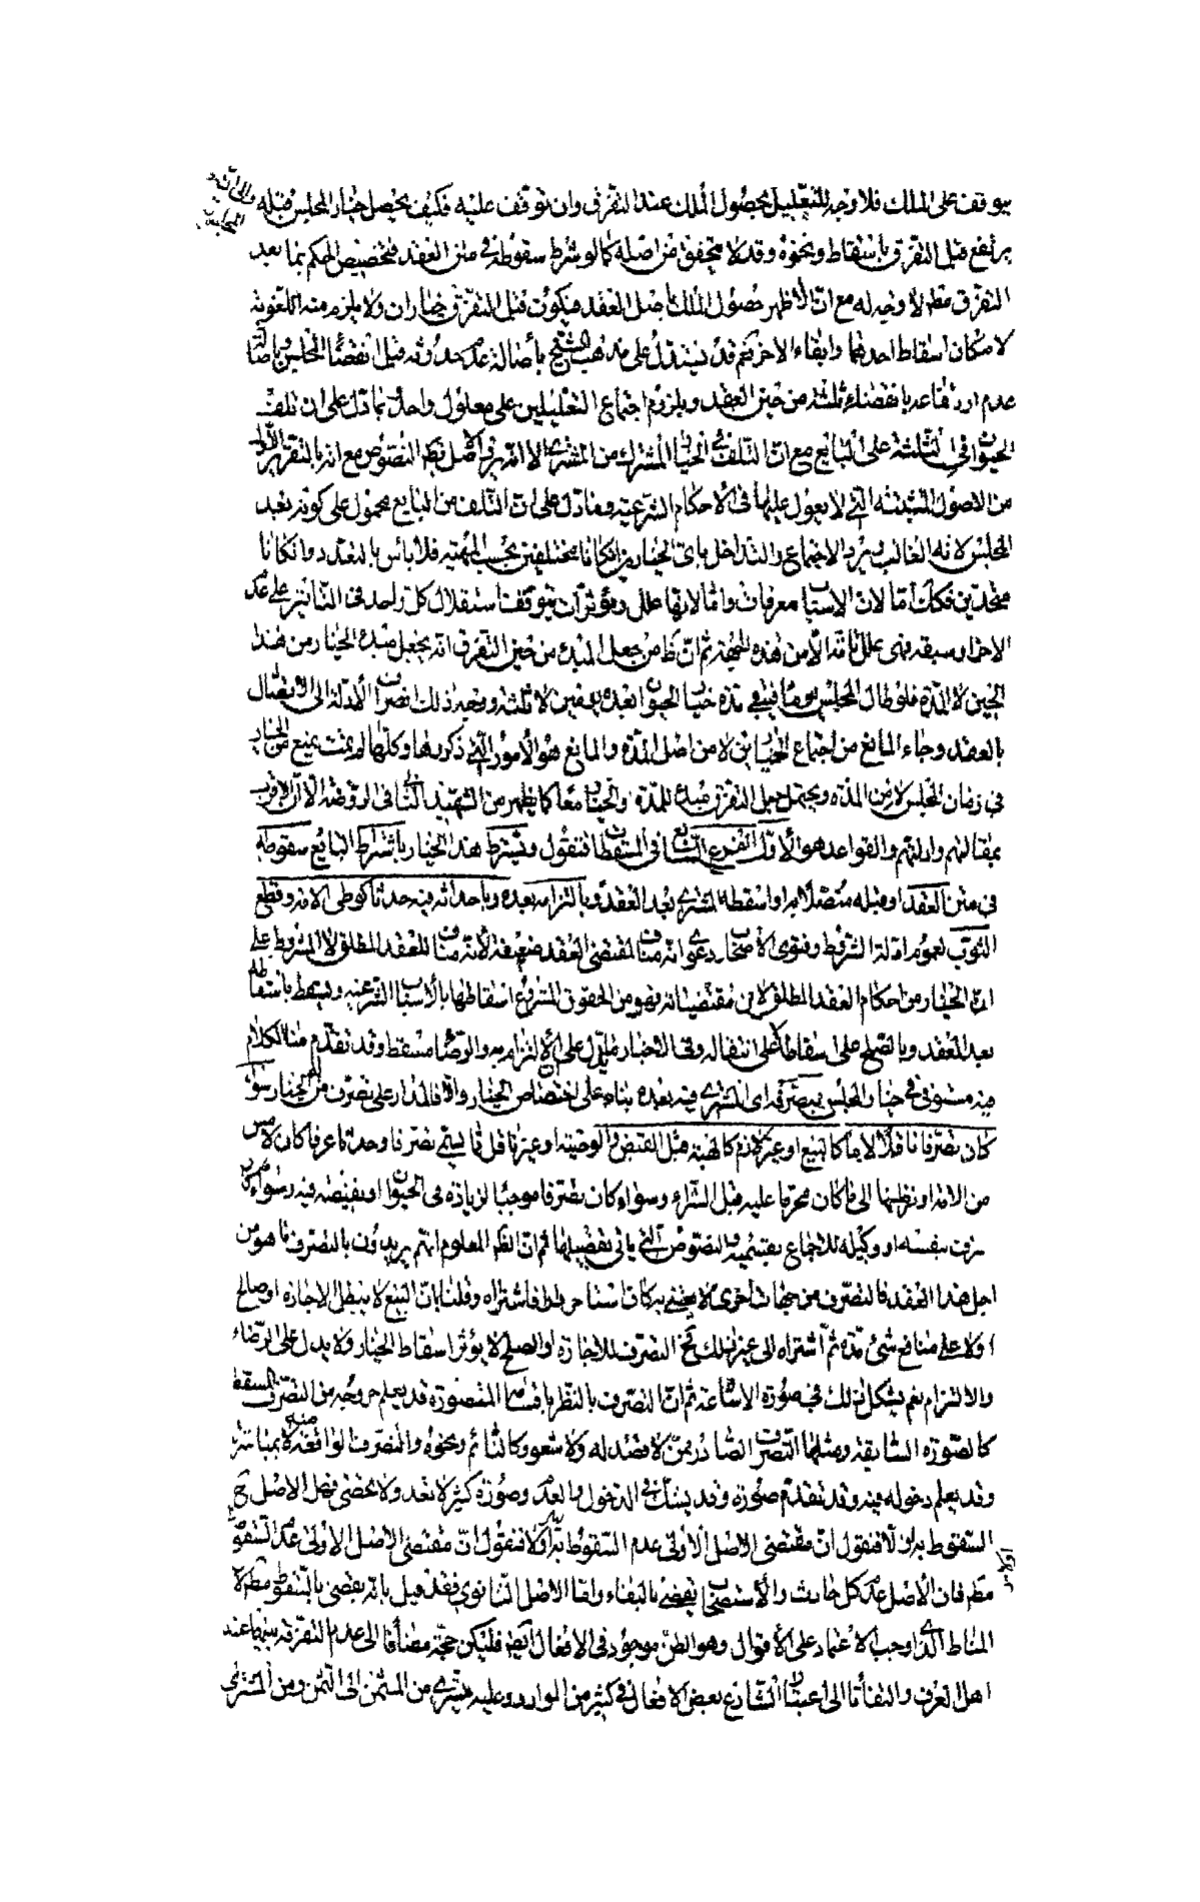 يتوقف على الملك فلا وجه للتعليل بحصول الملك عند التفرق وان توقف عليه فكيف يحصل خيار المجلس قبله
يرتفع قبل التفرق باسقاط ونحوه وقد لا يتحقق من اصله كما لو شرط سقوطه في متن العقد فتخصيص الحكم بما بعد
التفرق مطلقا لا وجه له مع ان الاظهر حصول الملك باصل العقد فيكون قبل التفرق خياران ولا يلزم منه اللغوية
لامكان اسقاط احدهما وابقاء الاخر نعم قد يستدل على مذهب الشيخ باصالة عدم حدوثه قبل انقضاء المجلس وباصالة
عدم ارتفاعه بانقضاء ثلثة من حين العقد وبلزوم اجتماع التعليلين على معلول واحد وبما دل على ان تلف
الحيوان في الثلثة على البايع مع ان التلف في الخيار المشترك من المشتري الا انه
من الاصول المثبتة التي لا يعول عليها في الاحكام الشرعية وما دل على ان التلف من البايع محمول على كونه بعد
المجلس لانه الغالب ويرد الاجتماع والتداخل بان الخيارين ان كانا مختلفين بحسب المهية فلا باس بالتعدد وان كانا
متحدين فكك اما لان الاسباب معرفات واما لانها علل ومؤثرات يتوقف استقلال كل واحد في التاثير على عدم
الاخر او سبقه فهي علل تامة الا من هذه الجهة ثم ان ظ من جعل المبدء من حين التفرق انه يجعل مبدء الخيار من هذا
الحين لا المدة فلو طال المجلس يومًا فيبقى مدة خيار الحيوان بعده يومين لا ثلثة ووجه ذلك انصراف الادلة الى الاتصال
بالعقد وجاء المانع من اجتماع الخيارين لا من اصل المدة والمانع هو الامور التي ذكروها وكلها لو تمت يمنع من الخيار
في زمان المجلس لا من المدة ويحتمل جعل التفرق مبدء للمدة والخيار معًا كما يظهر من الشهيد الثاني في الروضة الا ان الاقرب
بمقالتهم وادلتهم والقواعد هو الاول الفرع السابع في المسقطات فنقول ويسقط هذا الخيار باشتراط البايع سقوطه
في متن العقد او قبله متصلا به او اسقطه المشتري بعد العقد وبالتزامه بعده وباحداثه فيه حدثا كوطي الامة وقطع
الثوب لعموم ادلة الشروط وفتوى الاصحاب ودعوى انه مناف لمقتضى العقد ضعيفة لانه مناف للعقد المطلق لا المشروط على
ان الخيار من احكام العقد المطلق لا من مقتضياته فهو من الحقوق المشروع اسقاطها بالاسباب الشرعية ويسقط باسقاطه
بعد العقد وبالصلح على اسقاطه او على انتقاله وفي الاخبار ما يدل على ان الالتزام به والرضا مسقط وقد تقدم منا الكلام
فيه مستوفى في خيار المجلس بتصرفه اي المشتري فيه بعده بناء على اختصاص الخيار والا فالمدار على تصرف من له الخيار سواء
كان تصرفا ناقلا لازما كالبيع او غير لازم كالهبة قبل القبض والوصية او غير ناقل مما يسمى تصرفا وحدثا عرفا كان لامس
من الامة او نظر منها الى ما كان محرما عليه قبل الشراء وسواء كان تصرفا موجبًا لزيادة في الحيوان او نقيصة فيه وسواء كان
تصرف بنفسه او وكيله للاجماع بقسميه والنصوص التي ياتي تفصيلها ثم ان الظ المعلوم انهم يريدون بالتصرف ما هو من
اجل هذا العقد فالتصرف من جهات اخرى لا يخل به كان استاجر دارا فاشتراه وقلنا بان البيع لا يبطل الاجارة او صالح
اولا على منافع شئ مدة ثم اشتراه الى غير ذلك مما التصرف للاجارة او الصلح لا يؤثر اسقاط الخيار ولا يدل على الرضاء
والالتزام نعم يشكل ذلك في صورة الاشاعة ثم ان التصرف بالنظر باقسامه المتصورة قد يعلم خروجه من التصرف المسقط
كالصورة السابقة ومثلها التصرف الصادر ممن لا قصد له ولا شعور كالنائم ونحوه والتصرف الواقع منه لا بمباشرة
وقد يعلم دخوله فيه وقد تقدم صوره وقد يشك في الدخول والعدم وصوره كثيرة لا تعد ولا تحصى فهل الاصل ح
السقوط به او لا فنقول ان مقتضى الاصل الاولى عدم السقوط به اولا فنقول ان مقتضى الاصل الاولى عدم السقوط
مطلقا فان الاصل عدم كل حادث والاستصحاب يقضي بالبقاء واما الاصل الثانوي فقد قيل بانه يقضي بالسقوط مطلقا لان
المناط الذي اوجب الاعتماد على الاقوال وهو الظن موجود في الافعال ايضا فليكن حجة مضافا الى عدم التفرقة بينهما عند
اهل العرف والتفاتا الى اعتبار الشارع بعض الافعال في كثير من الموارد وعليه من المثمن الى الثمن ومن المشتري